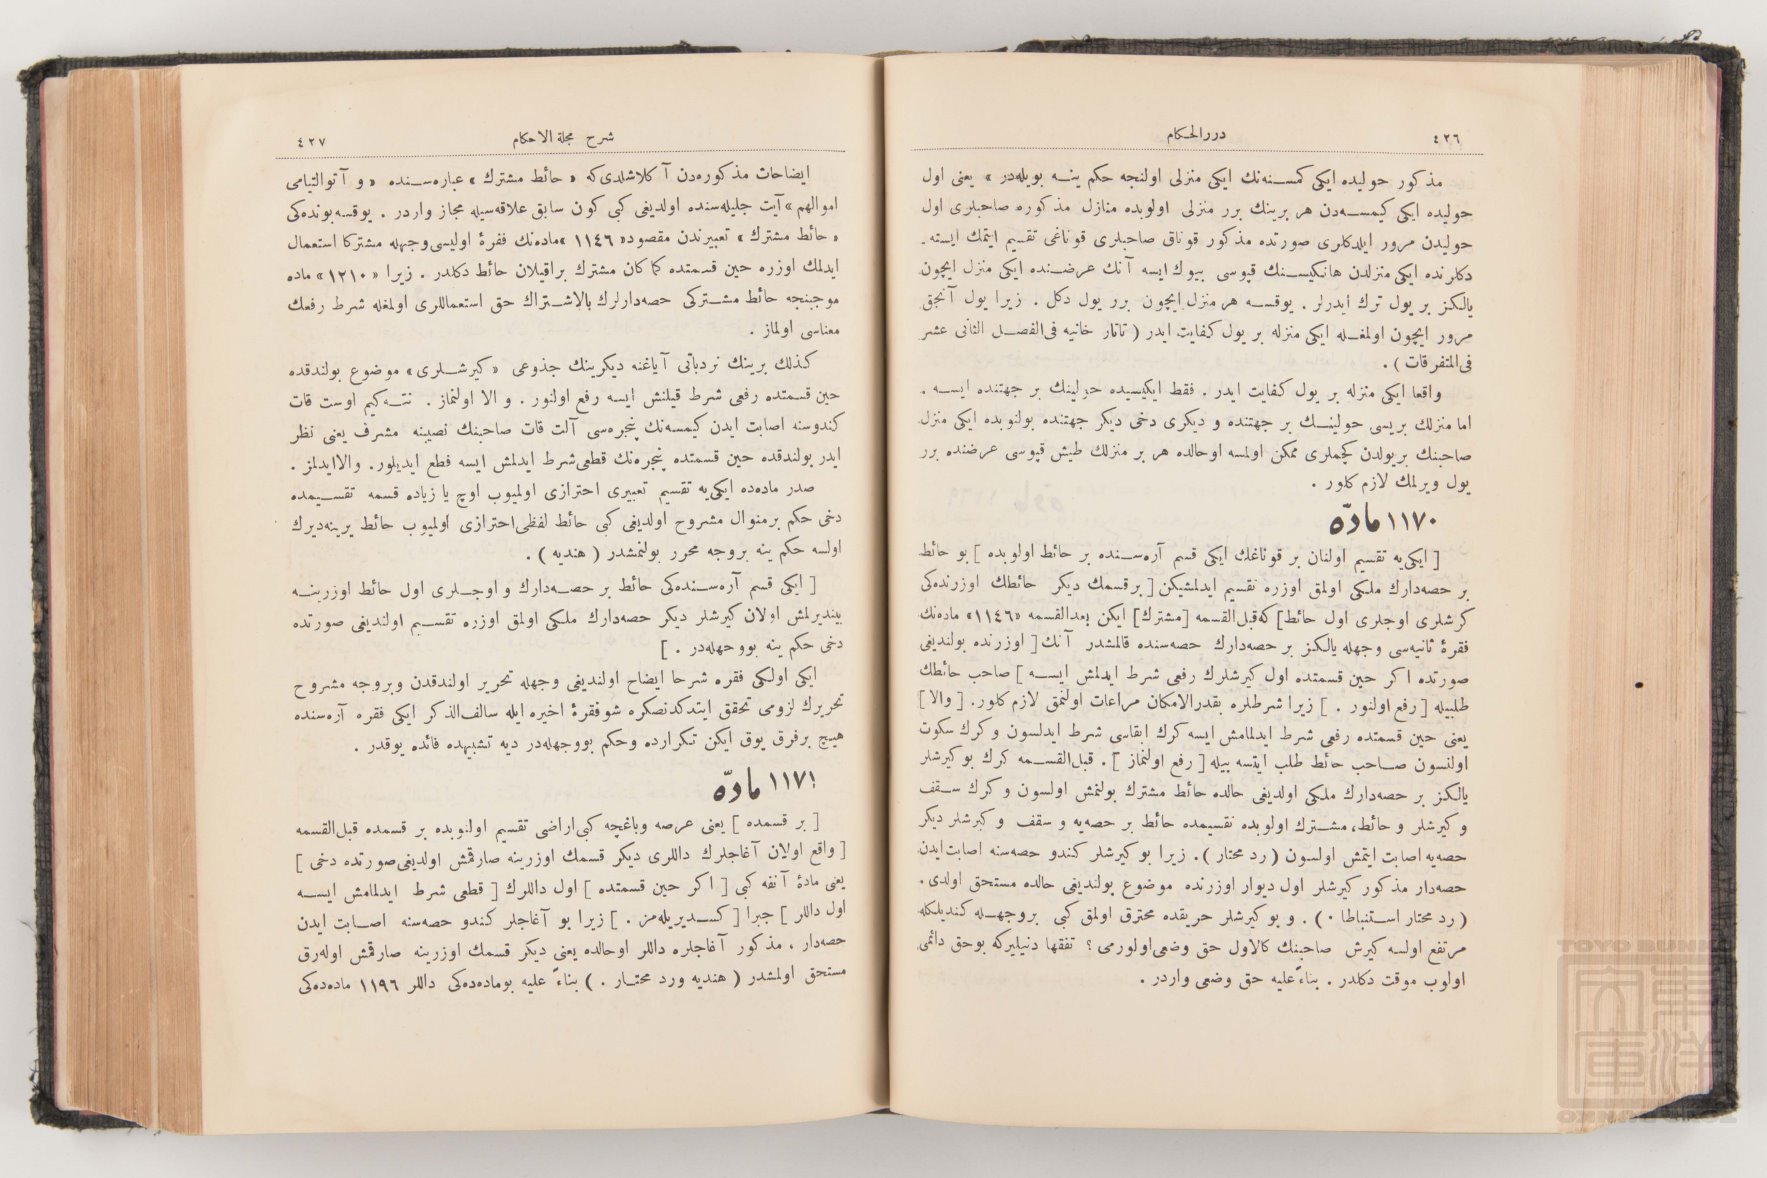 ٤٢٦
دررالحكام
مذكور حوليده ايكى كمسنه‌نك ايكى منزلى اولنجه حكم ينه بويله‌در » يعنى اول
حوليده ايكى كيمسه‌دن هر برينك برر منزلى اولوبده منازل مذكوره صاحبلرى اول
حوليدن مرور ايلدكلرى صورتده مذكور قوناق صاحبلرى قوناغى تقسيم ايتمك ايسته‌
دكلرنده ايكى منزلدن هانكيسنك قپوسى بيوك ايسه آنك عرضنده ايكى منزل ايچون
يالكز بر يول ترك ايدرلر . يوقسه هر منزل ايچون برر يول دكل . زيرا يول آنجق
مرور ايچون اولمغله ايكى منزله بر يول كفايت ايدر ( تاتار خانيه فى‌الفصل الثانى عشر
فى‌المتفرقات ) .
واقعا ايكى منزله بر يول كفايت ايدر . فقط ايكيسيده حولينك بر جهتنده ايسه .
اما منزلك بريسى حولينك بر جهتنده و ديكرى دخى ديكر جهتنده بولنوبده ايكى منزل
صاحبنك بريولدن كچملرى ممكن اولمسه اوحالده هر بر منزلك طيش قپوسى عرضنده برر
يول ويرلمك لازم كلور .
١١٧٠ مادّه
[ ايكى‌يه تقسيم اولنان بر قوناغك ايكى قسم آره‌سنده بر حائط اولوبده ] بو حائط
بر حصه‌دارك ملكى اولمق اوزره تقسيم ايدلمشيكن [ برقسمك ديكر حائطك اوزرنده‌كى
كرشلرى اوجلرى اول حائط] كه‌قبل‌القسمه [مشترك] ايكن بعدالقسمه «١١٤٦» ماده‌نك
فقرۀ ثانيه‌سى وجهله يالكز بر حصه‌دارك حصه‌سنده قالمشدر آنك [ اوزرنده بولنديغى
صورتده اكر حين قسمتده اول كيرشلرك رفعى شرط ايدلمش ايسه ] صاحب حائطك
طلبيله [ رفع اولنور . ] زيرا شرطلره بقدرالامكان مراعات اولنمق لازم كلور. [ والا ]
يعنى حين قسمتده رفعى شرط ايدلمامش ايسه كرك ابقاسى شرط ايدلسون و كرك سكوت
اولنسون صاحب حائط طلب ايتسه بيله [ رفع اولنماز ] . قبل‌القسمه كرك بو كيرشلر
يالكز بر حصه‌دارك ملكى اولديغى حالده حائط مشترك بولنمش اولسون و كرك سقف
و كيرشلر و حائط، مشترك اولوبده نقسيمده حائط بر حصه‌يه و سقف و كيرشلر ديكر
حصه‌يه اصابت ايتمش اولسون ( رد محتار ) . زيرا بو كيرشلر كندو حصه‌سنه اصابت ايدن
حصه‌دار مذكور كيرشلر اول ديوار اوزرنده موضوع بولنديغى حالده مستحق اولدى .
( رد محتار استنباطا ٠ ) . و بو كيرشلر حريقده محترق اولمق كبى بروجهله كنديلكله
مرتفع اولسه كيرش صاحبنك كالاول حق وضعى‌اولورمى ؟ تفقها دنيليركه بوحق دائمى
اولوب موقت دكلدر . بناءً عليه حق وضعى واردر .
شرح مجلة الاحكام
٤٢٧
ايضاحات مذكوره‌دن آكلاشلدى‌كه « حائط مشترك » عباره‌سنده « و آتواليتامى
اموالهم » آيت جليله‌سنده اولديغى كبى كون سابق علاقه‌سيله مجاز واردر . يوقسه‌بونده‌كى
« حائط مشترك » تعبيرندن مقصود« ١١٤٦ »ماده‌نك فقرۀ اوليسى‌وجهله مشتركا استعمال
ايدلمك اوزره حين قسمتده كما كان مشترك براقيلان حائط دكلدر . زيرا « ١٢١٠ » ماده
موجبنجه حائط مشتركى حصه‌دارلرك بالاشتراك حق استعماللرى اولمغله شرط رفعك
معناسى اولماز .
كذلك برينك نردبانى آياغنه ديكرينك جذوعى « كيرشلرى » موضوع بولندقده
حين قسمتده رفعى شرط قيلنش ايسه رفع اولنور . و الا اولنماز . نته‌كيم اوست قات
كندوسنه اصابت ايدن كيمسه‌نك پنجره‌سى آلت قات صاحبنك نصيبنه مشرف يعنى نظر
ايدر بولندقده حين قسمتده پنجره‌نك قطعى‌شرط ايدلمش ايسه قطع ايديلور. والاايدلمز .
صدر ماده‌ده ايكى‌يه تقسيم تعبيرى احترازى اولميوب اوچ يا زياده قسمه تقسيمده
دخى حكم برمنوال مشروح اولديغى كبى حائط لفظى‌احترازى اولميوب حائط يرينه‌ديرك
اولسه حكم ينه بروجه محرر بولنمشدر ( هنديه ) .
[ ايكى قسم آره‌سنده‌كى حائط بر حصه‌دارك و اوجلرى اول حائط اوزرينه
بينديرلمش اولان كيرشلر ديكر حصه‌دارك ملكى اولمق اوزره تقسيم اولنديغى صورتده
دخى حكم ينه بووجهله‌در . ]
ايكى اولكى فقره شرحا ايضاح اولنديغى وجهله تحرير اولندقدن وبروجه مشروح
تحريرك لزومى تحقق ايتدكدنصكره شوفقرۀ اخيره ايله سالف‌الذكر ايكى فقره آره‌سنده
هيچ برفرق يوق ايكن تكرارده وحكم بووجهله‌در ديه تشبيهده فائده يوقدر .
١١٧١ مادّه
[ بر قسمده ] يعنى عرصه وباغچه كبى‌اراضى تقسيم اولنوبده بر قسمده قبل‌القسمه
[ واقع اولان آغاجلرك داللرى ديكر قسمك اوزرينه صارقمش اولديغى‌صورتده دخى ]
يعنى مادۀ آنفه كبى [ اكر حين قسمتده ] اول داللرك [ قطعى شرط ايدلمامش ايسه
اول داللر ] جبرا [ كسديريله‌مز . ] زيرا بو آغاجلر كندو حصه‌سنه اصابت ايدن
حصه‌دار ، مذكور آغاجلره داللر اوحالده يعنى ديكر قسمك اوزرينه صارقمش اوله‌رق
مستحق اولمشدر ( هنديه ورد محتار . ) بناءً عليه بوماده‌ده‌كى داللر ١١٩٦ ماده‌ده‌كى
TOYO BUNKO